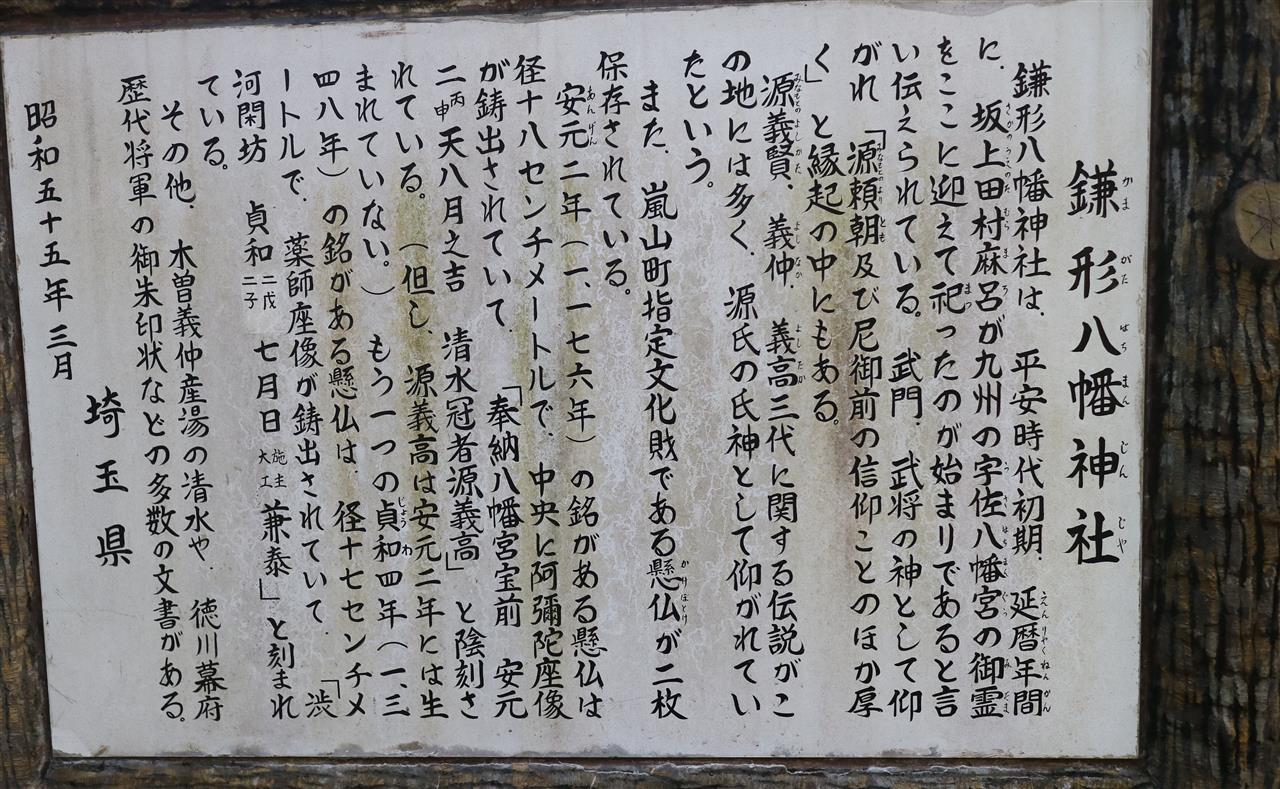 鎌形八幡神社
鎌形八幡神社は、平安時代初期、延暦年間
に、坂上田村麻呂が九州の宇佐八幡宮の御霊
をここに迎えて祀ったのが始まりであると言
い伝えられている。武門、武将の神として仰
がれ「源頼朝及び尼御前の信仰ことのほか厚
く」と縁起の中にもある。
源義賢、義仲、義高三代に関する伝説がこ
の地には多く、源氏の氏神として仰がれてい
たという。
また、嵐山町指定文化財である懸仏が二枚
保存されている。
安元二年(一、一七六年)の銘がある懸仏は
径十八センチメートルで、中央に阿彌陀座像
が鋳出されていて、「奉納八幡宮宝前 安元
二丙申天八月之吉 清水冠者源義高」と陰刻さ
れている。(但し、源義高は安元二年には生
まれていない。)もう一つの貞和四年(一、三
四八年)の銘がある懸仏は、径十七センチメ
ートルで、薬師座像が鋳出されていて、「渋
河閑坊 貞和二二戊子 七月日 大工施主 兼泰」と刻まれ
ている。
その他、木曽義仲産湯の清水や、徳川幕府
歴代将軍の御朱印状などの多数の文書がある。
昭和五十五年三月
埼玉県